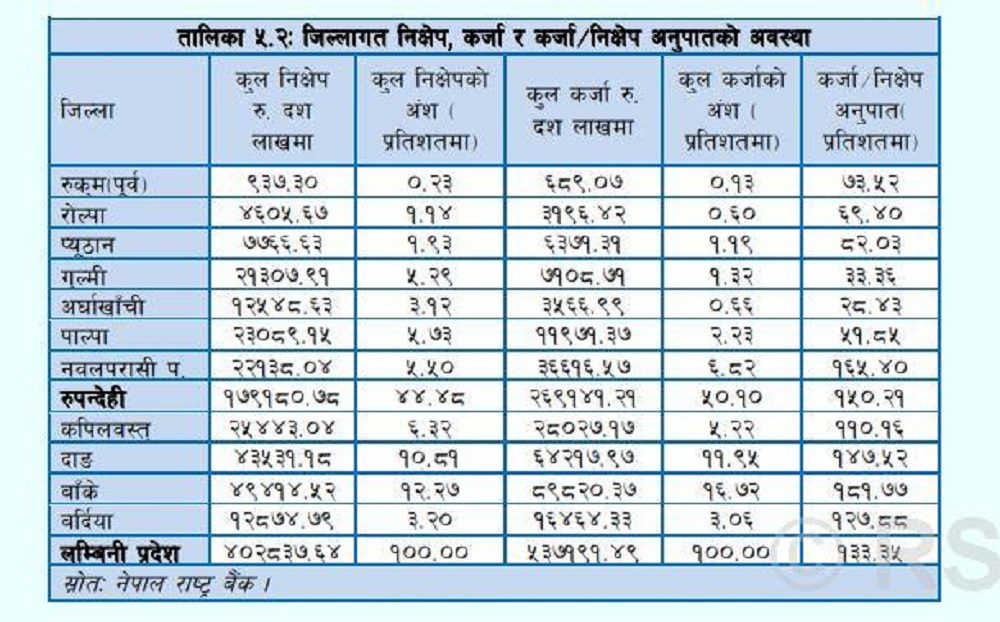 तालिका ५.२: जिल्लागत निक्षेप, कर्जा र कर्जा/निक्षेप अनुपातको अवस्था
जिल्ला कुल निक्षेप रु. दश लाखमा कुल निक्षेपको अंश ( प्रतिशतमा) कुल कर्जा रु. दश लाखमा कुल कर्जाको अंश ( प्रतिशतमा) कर्जा/निक्षेप अनुपात( प्रतिशतमा)
रुकुम(पूर्व) ९३७.३० ०.२३ ६८९.०७ ०.१३ ७३.५२
रोल्पा ४६०५.६७ १.१४ ३१९६.४२ ०.६० ६९.४०
प्यूठान ७७६६.६३ १.९३ ६३७१.३१ १.१९ ८२.०३
गुल्मी २१३०७.९१ ५.२९ ७१०८.७१ १.३२ ३३.३६
अर्घाखाँची १२५४८.६३ ३.१२ ३५६६.९९ ०.६६ २८.४३
पाल्पा २३०८९.१५ ५.७३ ११९७१.३७ २.२३ ५१.८५
नवलपरासी प. २२१३८.०४ ५.५० ३६६१६.५७ ६.८२ १६५.४०
रुपन्देही १७९१८०.७८ ४४.४८ २६९१४१.२१ ५०.१० १५०.२१
कपिलवस्तु २५४४३.०४ ६.३२ २८०२७.१७ ५.२२ ११०.१६
दाङ ४३५३१.१८ १०.८१ ६४२१७.९७ ११.९५ १४७.५२
बाँके ४९४१४.५२ १२.२७ ८९८२०.३७ १६.७२ १८१.७७
बर्दिया १२८७४.७९ ३.२० १६४६४.३३ ३.०६ १२७.८८
लुम्बिनी प्रदेश ४०२८३७.६४ १००.०० ५३७१९१.४९ १००.०० १३३.३५
स्रोत: नेपाल राष्ट्र बैंक ।
© RS